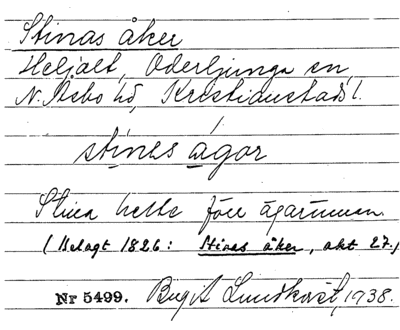 Stinas åker
Heljalt, Oderljunga sn,
N. Åsbo hd, Kristianstads l.
stines ågor
Stina hette förr ägarinnan.
(Belagt 1826: Stinas åker, akt 27.)
Nr 5499. Birgit Lundkvist, 1938.